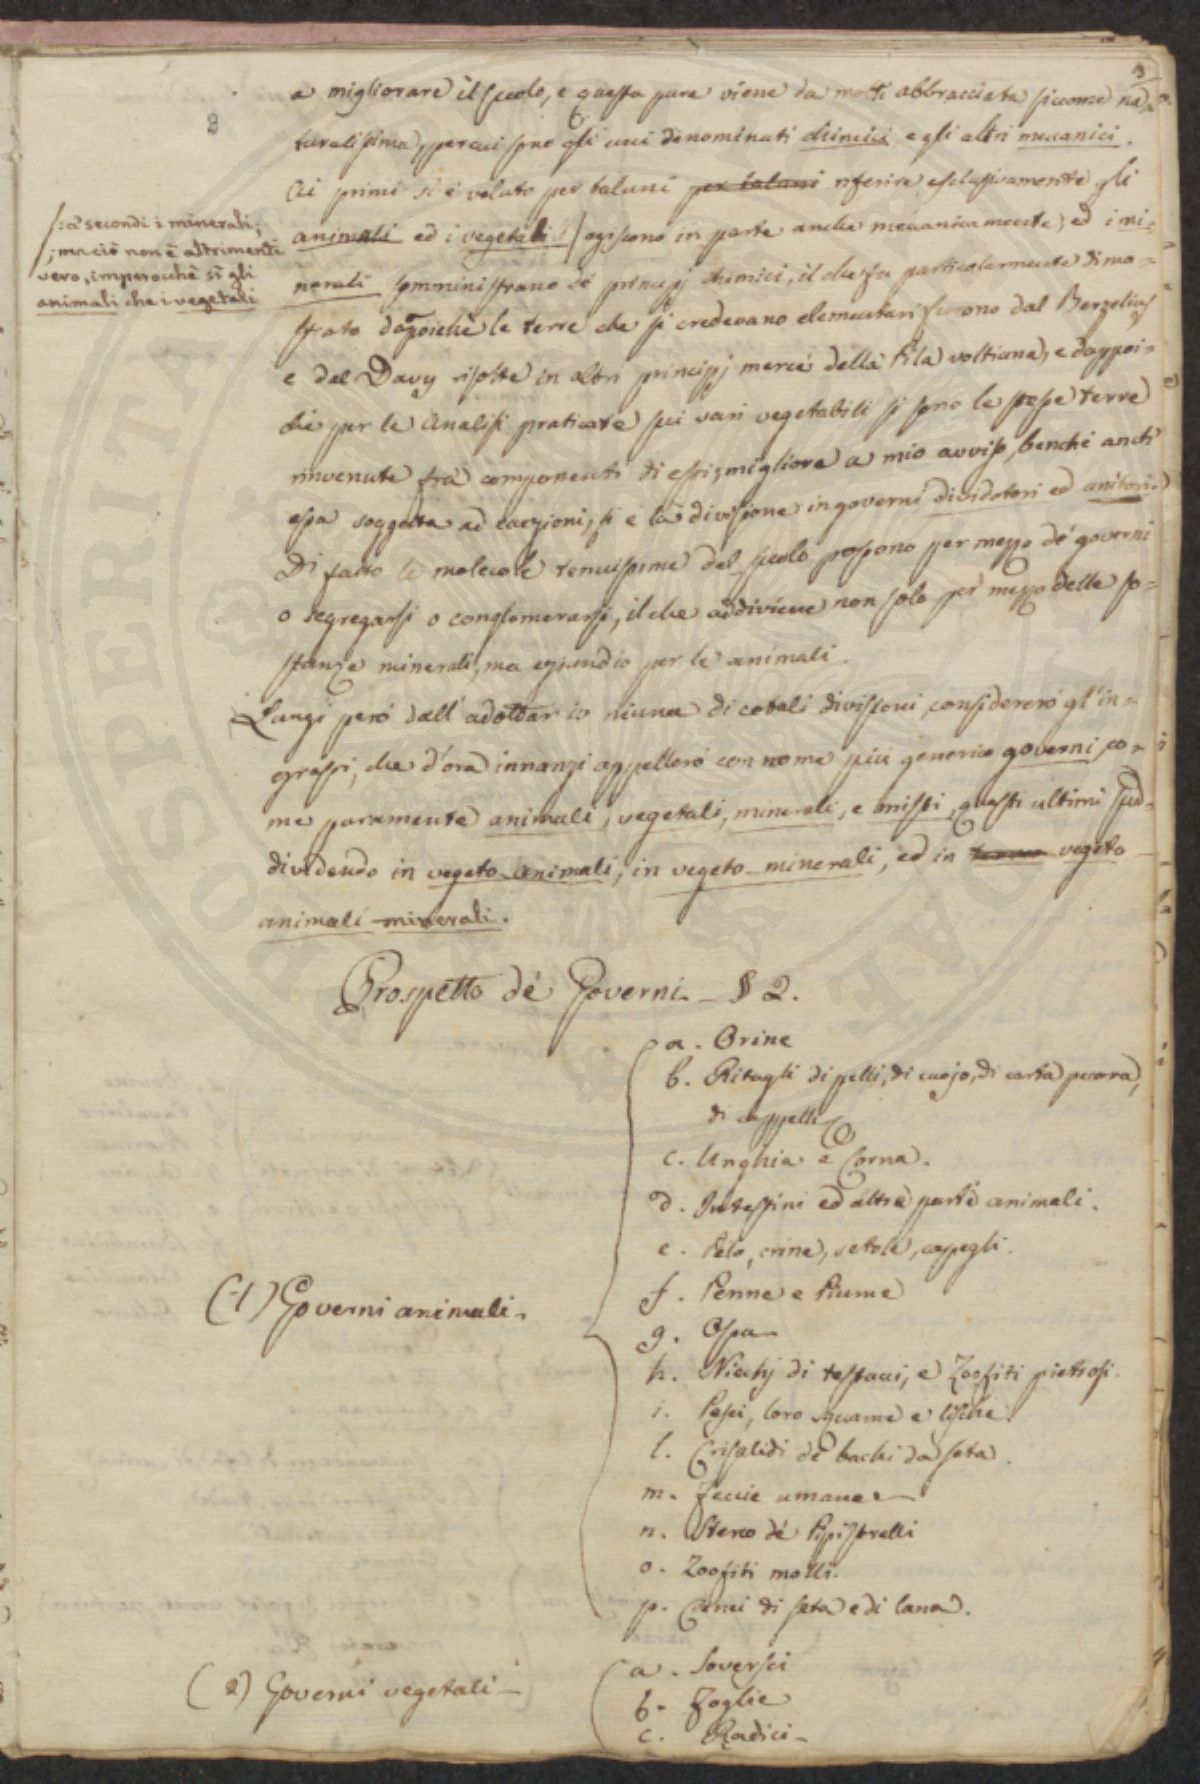 3
8
a migliorare il suolo, e questa pure viene da molti abbracciata siccome na-
turalissima, per cui sono gli uni denominati chimici e gli altri meccanici.
Ai primi si è voluto per taluni per taluni riferire esclusivamente gli
animali ed i vegetabili / agiscono in parte anche meccanicamente, ed i mi-
nerali somministrano de' principj chimici, il che fu particolarmente dimo-
strato dappoichè le terre che si credevano elementari furono dal Berzelius
e dal Davy risolte in altri principj mercè della Pila voltiana, e dappoi-
chè per le Analisi praticate sui vari vegetabili si sono le stesse terre
rinvenute frà componenti di essi; migliore a mio avviso, benchè anch'
essa soggetta ad eccezioni, si è la divisione in governi dividotori ed unitori.
Di fatto le molecole tenuissime del suolo possono per mezzo de' governi
o segregarsi o conglomerarsi, il che addiviene non solo per mezzo delle so-
stanze minerali, ma eziandio per le animali.
Lungi però dall' adottar io niuna di cotali divisioni considererò gl' in-
grassi, che d'ora innanzi appellerò con nome più generico governi, co-
me puramente animali, vegetali, minerali, e misti, questi ultimi sud-
dividendo in vegeto-animali, in vegeto-minerali, ed in vegeto
animali-minerali.
/: ai secondi i minerali;
; ma ciò non è altrimenti
vero, imperocchè sì gli
animali che i vegetali
Prospetto de' Governi - § 2.
(1) Governi animali.
a. Orine
b. Ritagli di pelli, di cuojo, di carta pecora,
di cappelli
c. Unghia e Corna.
d. Intestini ed altre parti animali.
e. Pelo, crine, setole, capegli.
f. Penne e Piume
g. Ossa
h. Nicchj di testacei, e Zoofiti pietrosi.
i. Pesci, loro squame e lische.
l. Crisalidi de' bachi da seta.
m. Feccie umane
n. Sterco de' Pipistrelli
o. Zoofiti molli.
p. Cenci di seta e di lana.
(2) Governi vegetali
a. Soversci
b. Foglie
c. Radici